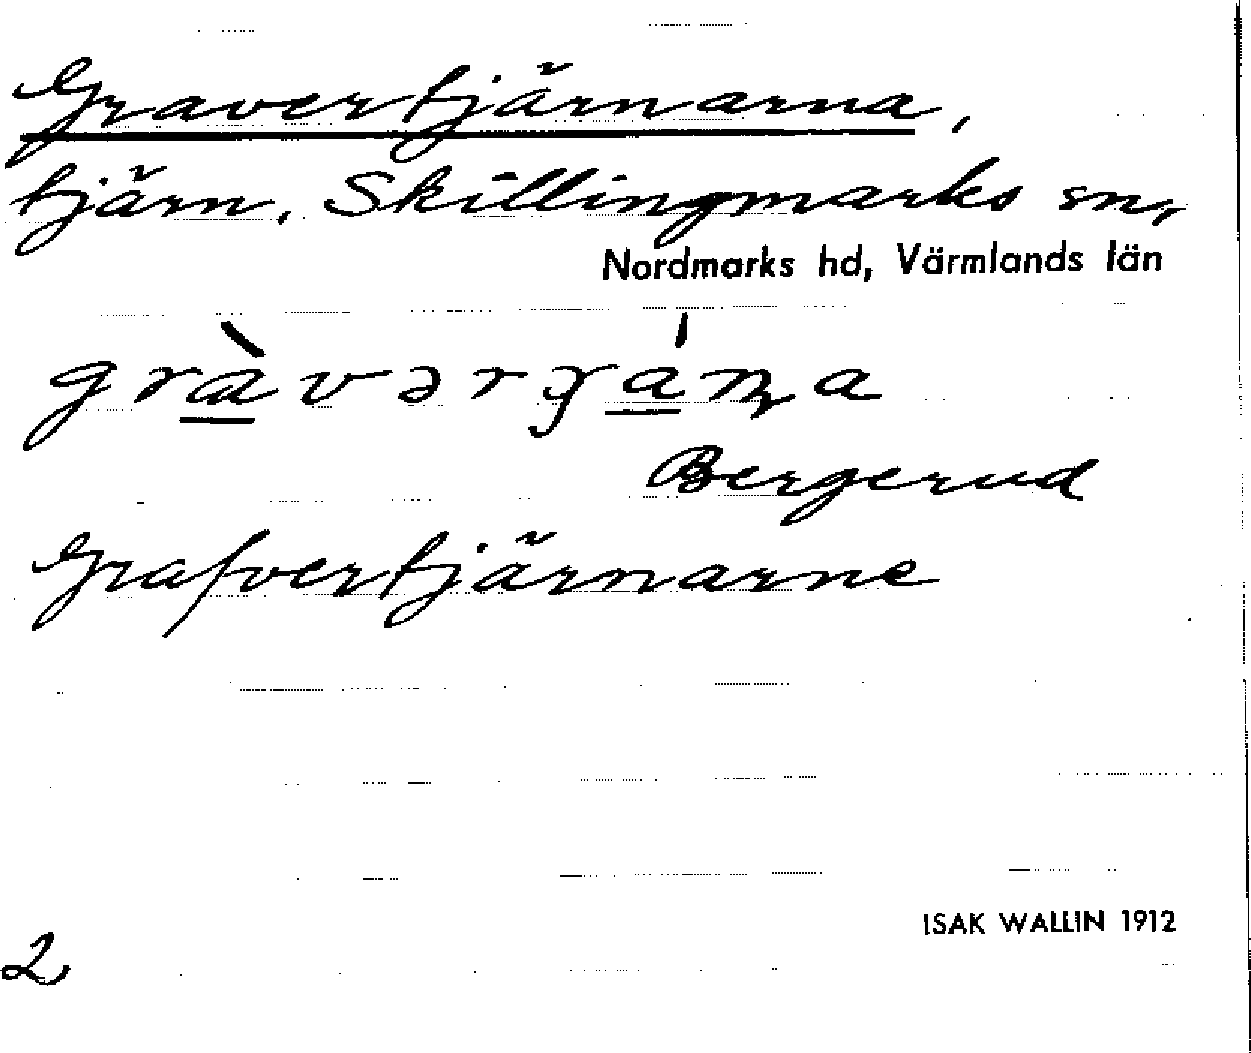 Gravertjärnarna,
tjärn. Skillingmarks sn,
Nordmarks hd, Värmlands län
Bergerud
Grafvertjärnarne
ISAK WALLIN 1912
2